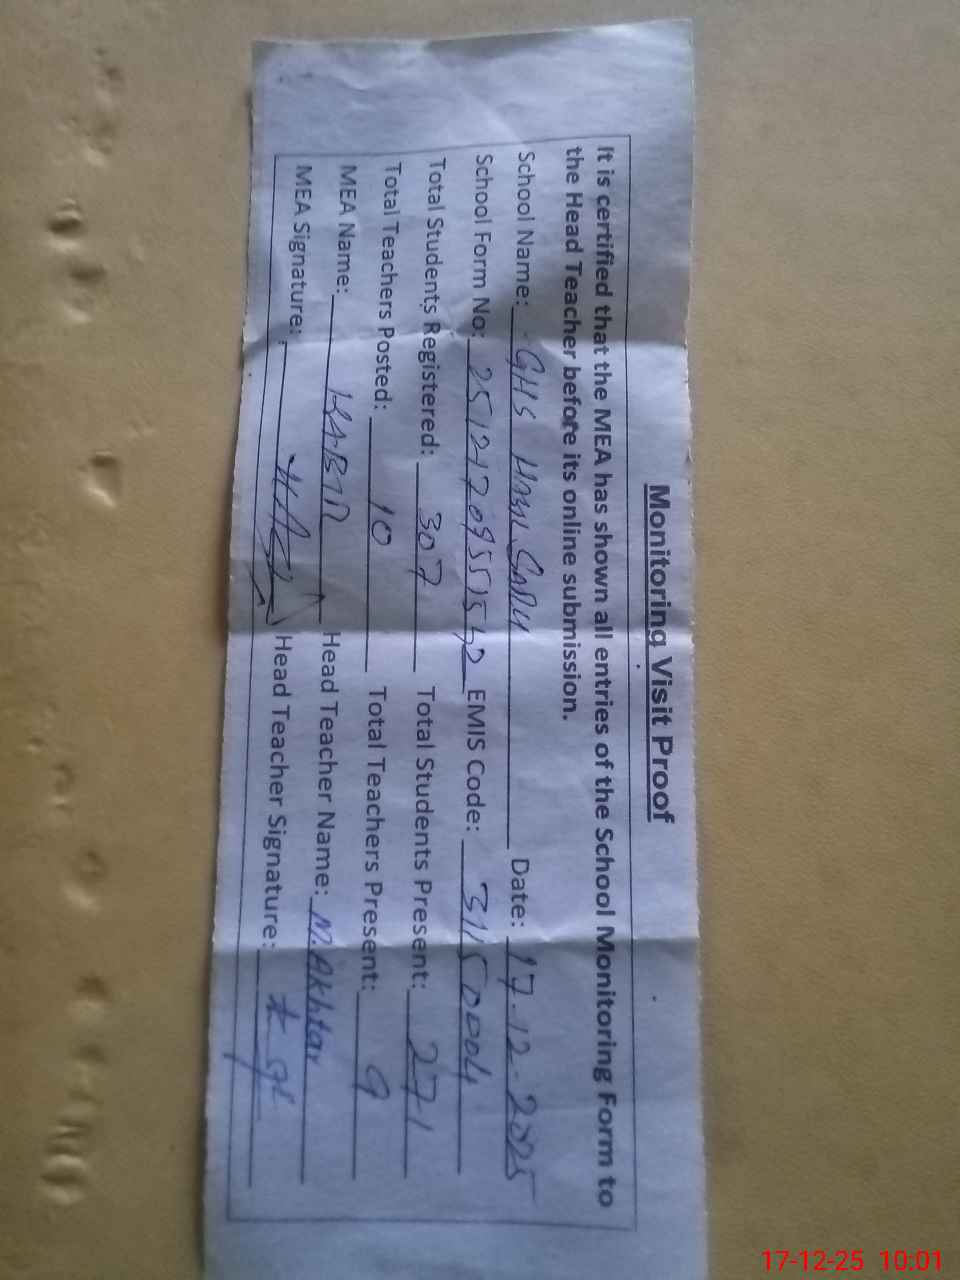 Monitoring Visit Proof
It is certified that the MEA has shown all entries of the School Monitoring Form to
the Head Teacher before its online submission.
School Name: GHS Date: 17-12-2025
School Form No: EMIS Code: 31150004
Total Students Registered: 307 Total Students Present: 271
Total Teachers Posted: 10 Total Teachers Present: 9
MEA Name: KABIR Head Teacher Name: M. Akhtar
MEA Signature: Head Teacher Signature:
17-12-25 10:01